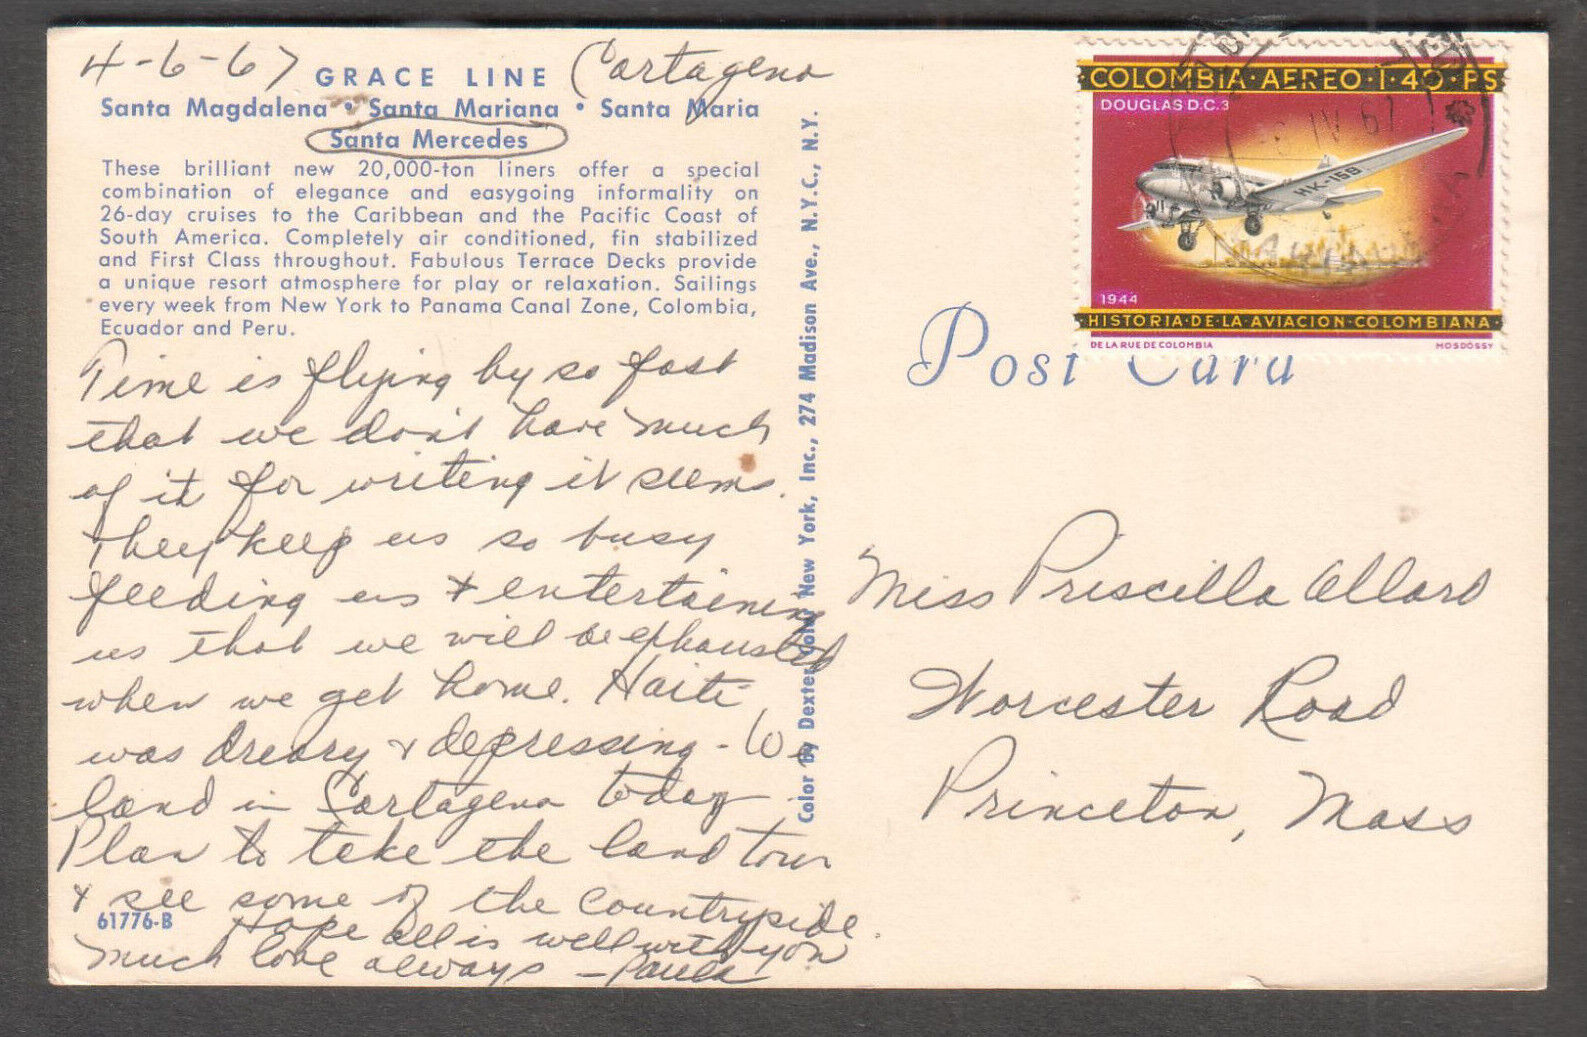 4-6-67
Cartagena
GRACE LINE
Santa Magdalena • Santa Mariana • Santa Maria
Santa Mercedes
These brilliant new 20,000-ton liners offer a special
combination of elegance and easygoing informality on
26-day cruises to the Caribbean and the Pacific Coast of
South America. Completely air conditioned, fin stabilized
and First Class throughout. Fabulous Terrace Decks provide
a unique resort atmosphere for play or relaxation. Sailings
every week from New York to Panama Canal Zone, Colombia,
Ecuador and Peru.
Time is flying by so fast
that we don't have much
of it for writing it seems.
They keep us so busy
feeding us & entertaining
us that we will be exhausted
when we get home. Haiti
was dreary & depressing - We
land in Cartagena today
Plan to take the land tour
& see some of the countryside.
Hope all is well with you
much love always - Paula
61776-B
Color by Dexter Color New York, Inc., 274 Madison Ave., N.Y.C., N.Y.
COLOMBIA·AEREO·1·40·PS
DOUGLAS D.C.3
HK-159
1944
HISTORIA·DE·LA·AVIACION·COLOMBIANA
DE LA RUE DE COLOMBIA
MOSDÓSSY
IV 67
Post Card
Miss Priscilla Allard
Worcester Road
Princeton, Mass